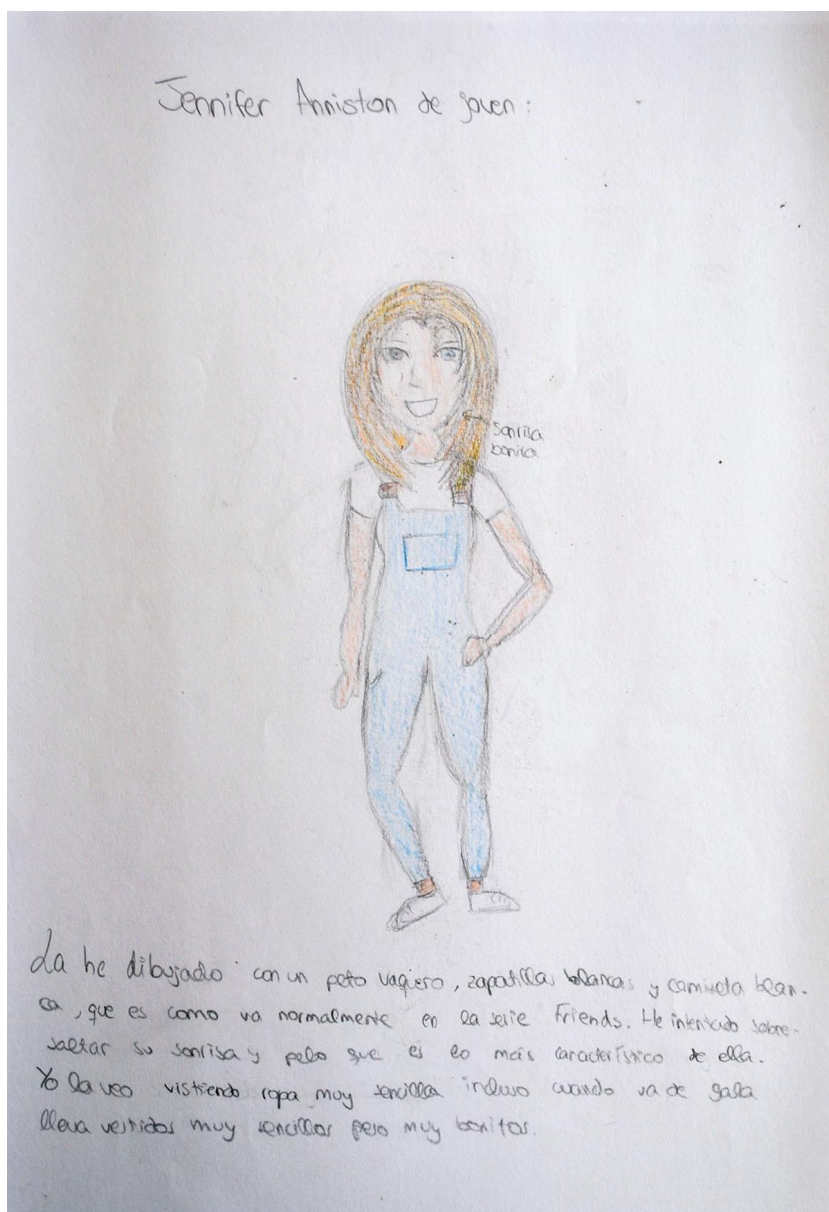 Jennifer Anniston de joven:
sonrisa
bonita
La he dibujado con un peto vaquero, zapatillas blancas y camiseta blan-
ca, que es como va normalmente en la serie Friends. He intentado sobre-
saltar su sonrisa y pelo que es lo más característico de ella.
Yo la veo vistiendo ropa muy sencilla incluso cuando va de gala
lleva vestidos muy sencillos pero muy bonitos.